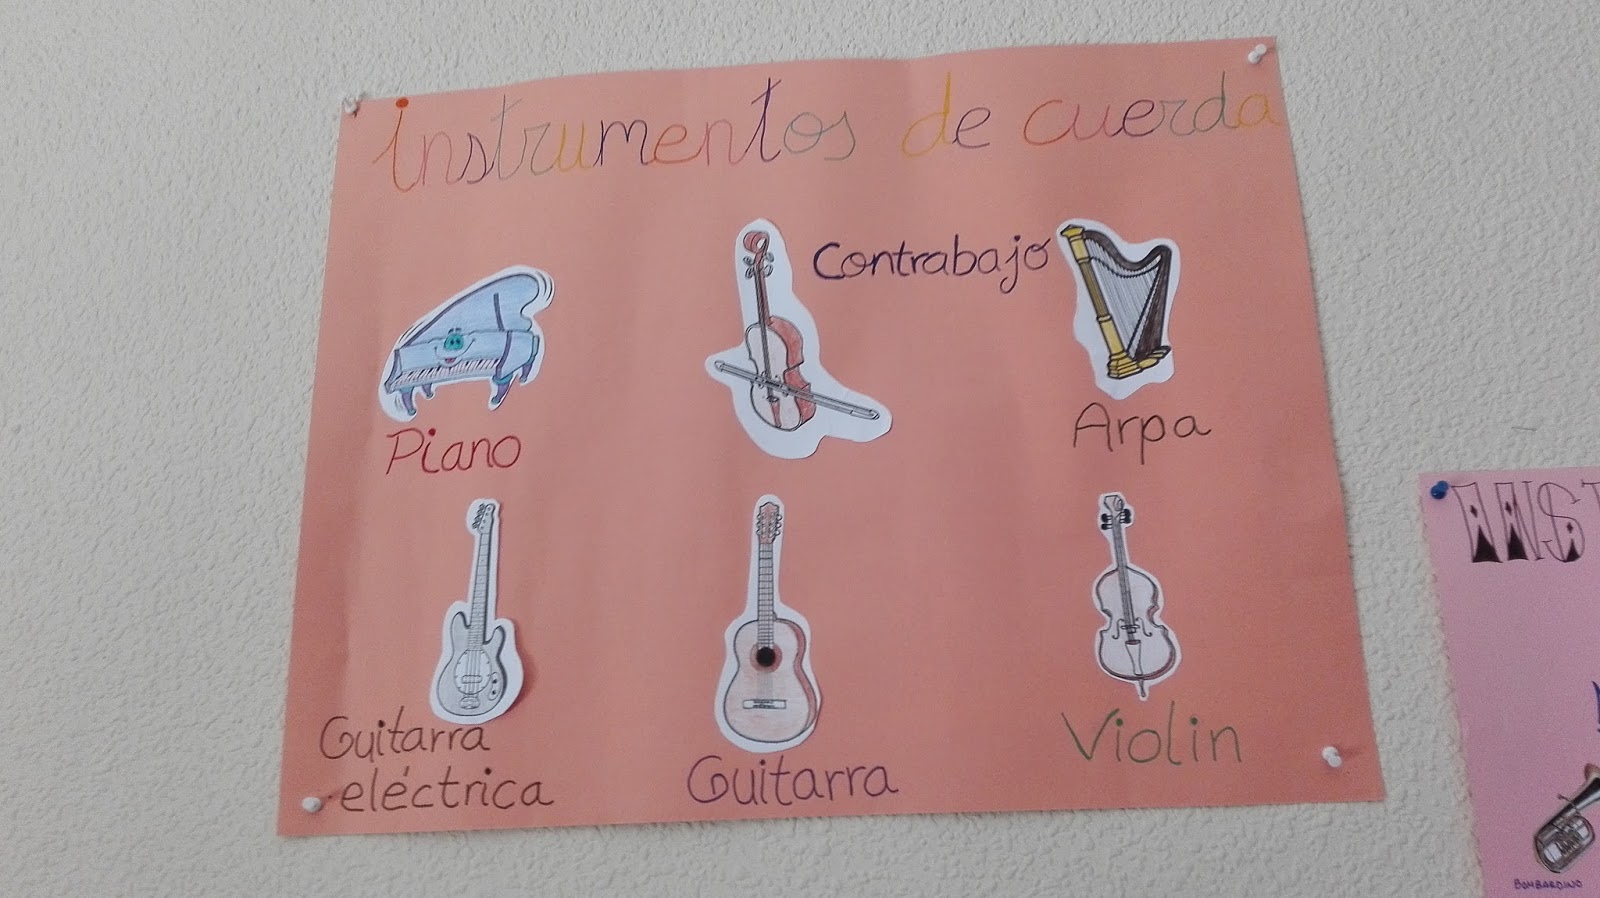 instrumentos de cuerda
Contrabajo
Piano
Arpa
Guitarra
eléctrica
Guitarra
Violin
INS
BOMBARDINO